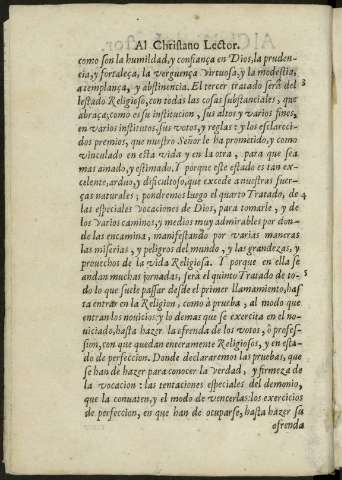 Al Christiano Lector.
como son la humildad, y confiança en Dios, la pruden-
cia, y fortaleça, la verguença virtuosa, y la modestia,
a templança, y abstinencia. El tercer tratado será del
3
lestado Religioso, con todas las cosas substanciales, que
abraça; como es su institucion, sus altos y varios fines,
en varios institutos. sus votos, y reglas: y los esclareci-
dos premios, que nuestro Señor le ha prometido, y como
vinculado en esta vida y en la otra, para que sea
mas amado, y estimado. Y porque este estado es tan ex-
celente, arduo, y dificultoso, que excede a nuestras fuer-
ças naturales; pondremos luego el quarto Tratado, de
4
las especiales vocaciones de Dios, para tomarle, y de
los varios caminos, y medios muy admirables por don-
de las encamina, manifestando por varias maneras
las miserias, y peligros del mundo, y las grandezas, y
prouechos de la vida Religiosa. Y porque en ella se
andan muchas jornadas, será el quinto Tratado de to-
5
do lo que suele passar desde el primer llamamiento, has-
ta entrar en la Religion, como à prueba, al modo que
entran los nouicios: y lo demas que se exercita en el no-
uiciado, hasta hazer la ofrenda de los votos, ò profes-
sion, con que quedan enteramente Religiosos, y en esta-
do de perfeccion. Donde declararemos las pruebas, que
se han de hazer para conocer la verdad, y firmeza de
la vocacion: las tentaciones especiales del demonio,
que la conuaten, y el modo de vencerlas: los exercicios
de perfeccion, en que han de ocuparse, hasta hazer su
ofrenda